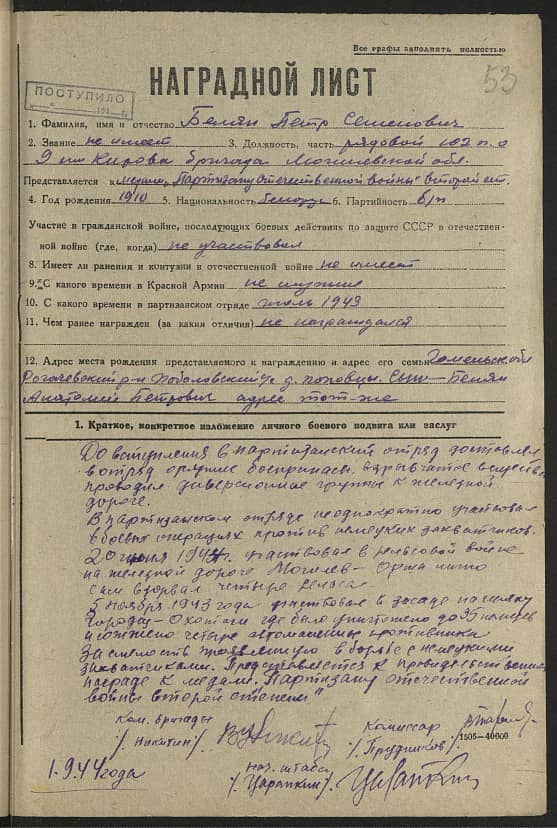 Все графы заполнять полностью
53
НАГРАДНОЙ ЛИСТ
ПОСТУПИЛО
1. Фамилия, имя и отчество Белян Петр Семенович
2. Звание не имеет 3. Должность, часть рядовой 102 п.о
9 им Кирова бригада Могилевской обл.
Представляется к медали „Партизану Отечественной войны" второй ст.
4. Год рождения 1910 5. Национальность белорус 6. Партийность б/п
Участие в гражданской войне, последующих боевых действиях по защите СССР в отечествен-
ной войне (где, когда) не участвовал
8. Имеет ли ранения и контузии в отечественной войне не имеет
9. С какого времени в Красной Армии не служил
10. С какого времени в партизанском отряде июль 1943
11. Чем ранее награжден (за какия отличия) не награждался
12. Адрес места рождения представляемого к награждению и адрес его семьи Гомельской обл
Рогачевский р-н д. Сын — Белян
Анатолий Петрович адрес тот-же
1. Краткое, конкретное изложение личного боевого подвига или заслуг
До вступления в партизанский отряд доставлял
в отряд оружие боеприпасы взрывчатое вещество
проводил диверсионные группы к железной
дороге.
В партизанском отряде неоднократно участвовал
в боевых операциях против немецких захватчиков.
20 июня 1944г. участвовал в рельсовой войне
на железной дороге Могилев — Орша лично
сам взорвал четыре рельса
5 ноября 1943 года участвовал в засаде на шляху
Городец — где было уничтожено до 35 немцев
и сожжено четыре автомашины противника
За смелость проявленную в борьбе с немецкими
захватчиками. Представляется к правительственной
награде к медали „Партизану отечественной
войны второй степени"
Ком. бригады
/. Никитин/
Комиссар
/. Прудников/
1505—40000
1.9.44 года
нач. штаба
/. Царапкин/